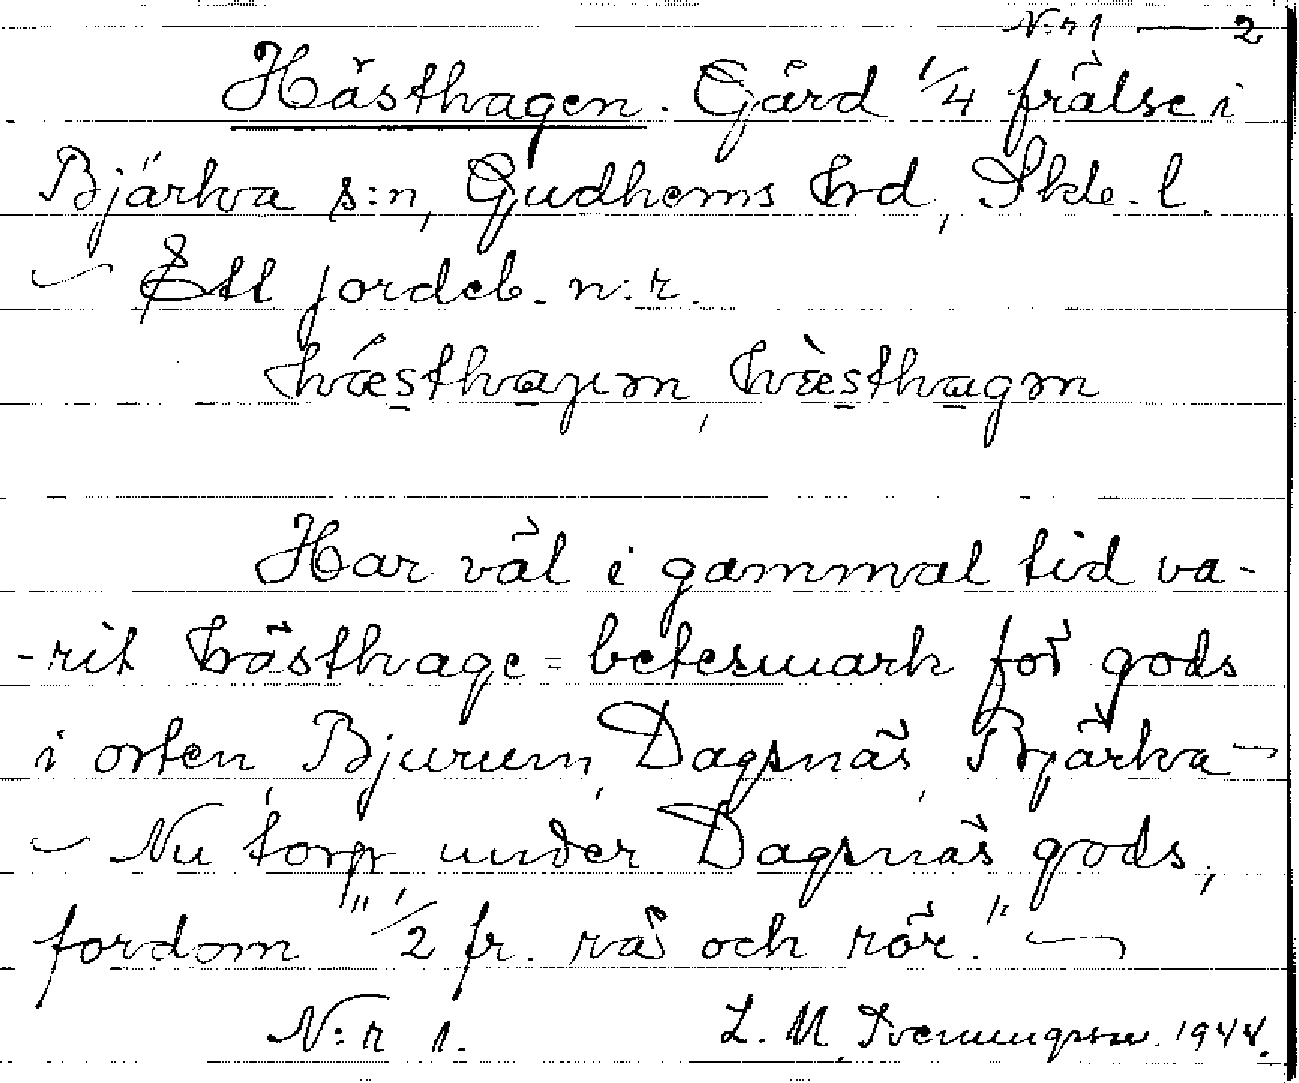 N:r 1 — 2
Hästhagen. Gård 1/4 frälse i
Bjärka s:n, Gudhems hrd, Skb. l.
— Ett jordeb. n:r.
hæsthaγεn, hæsthagεn
Har väl i gammal tid va-
-rit hästhage = betesmark för gods
i orten, Bjurum, Dagsnäs, Bjärka —
— Nu torp under Dagsnäs gods,
fordom "1/2 fr. rå och rör." —
N:r 1. L. M. Svenungsson 1944.